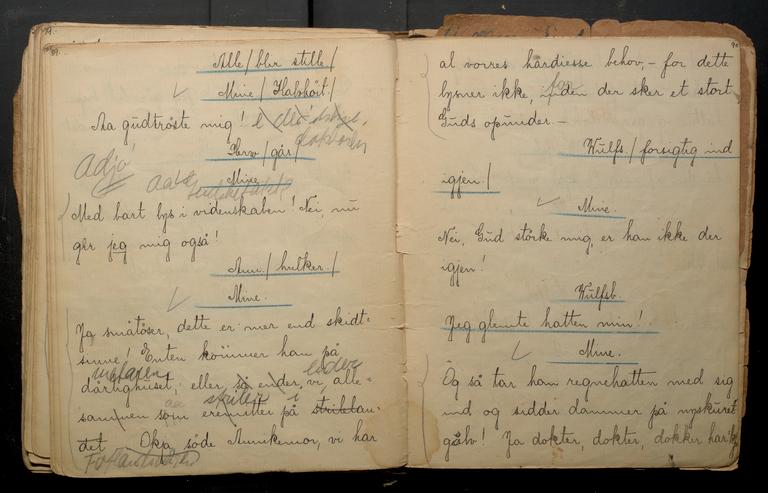 89.
Alle / blir stille /
Mine / Halvhöit /
Aa gudtröste mig!
doktoren
Herw / går /
adjö
Mine
Med bart lys i videnskaben! Nei, nu
går jeg mig også!
Ann. / hulker. /
Mine.
Ja småtöser, dette er mer end skidt-
sinne! Enten kömmer han på
dårlighuset, eller så ender vi alle-
ender
sammen som eremitter på
det. Oka, söde Annikemor, vi har
90
al vorres hårdiesse behov, – for dette
lysner ikke, för den der sker et stort
Guds opunder. –
Wulfs. / forsigtig ind
igjen /
Mine.
Nei, Gud störke mig, er han ikke der
igjen!
Wulfsb.
Jeg glemte hatten min!
Mine.
Og så tar han regnehatten med sig
ind og sidder dammer på nyskuret
gålv! Ja dokter, dokter, dokker har ik